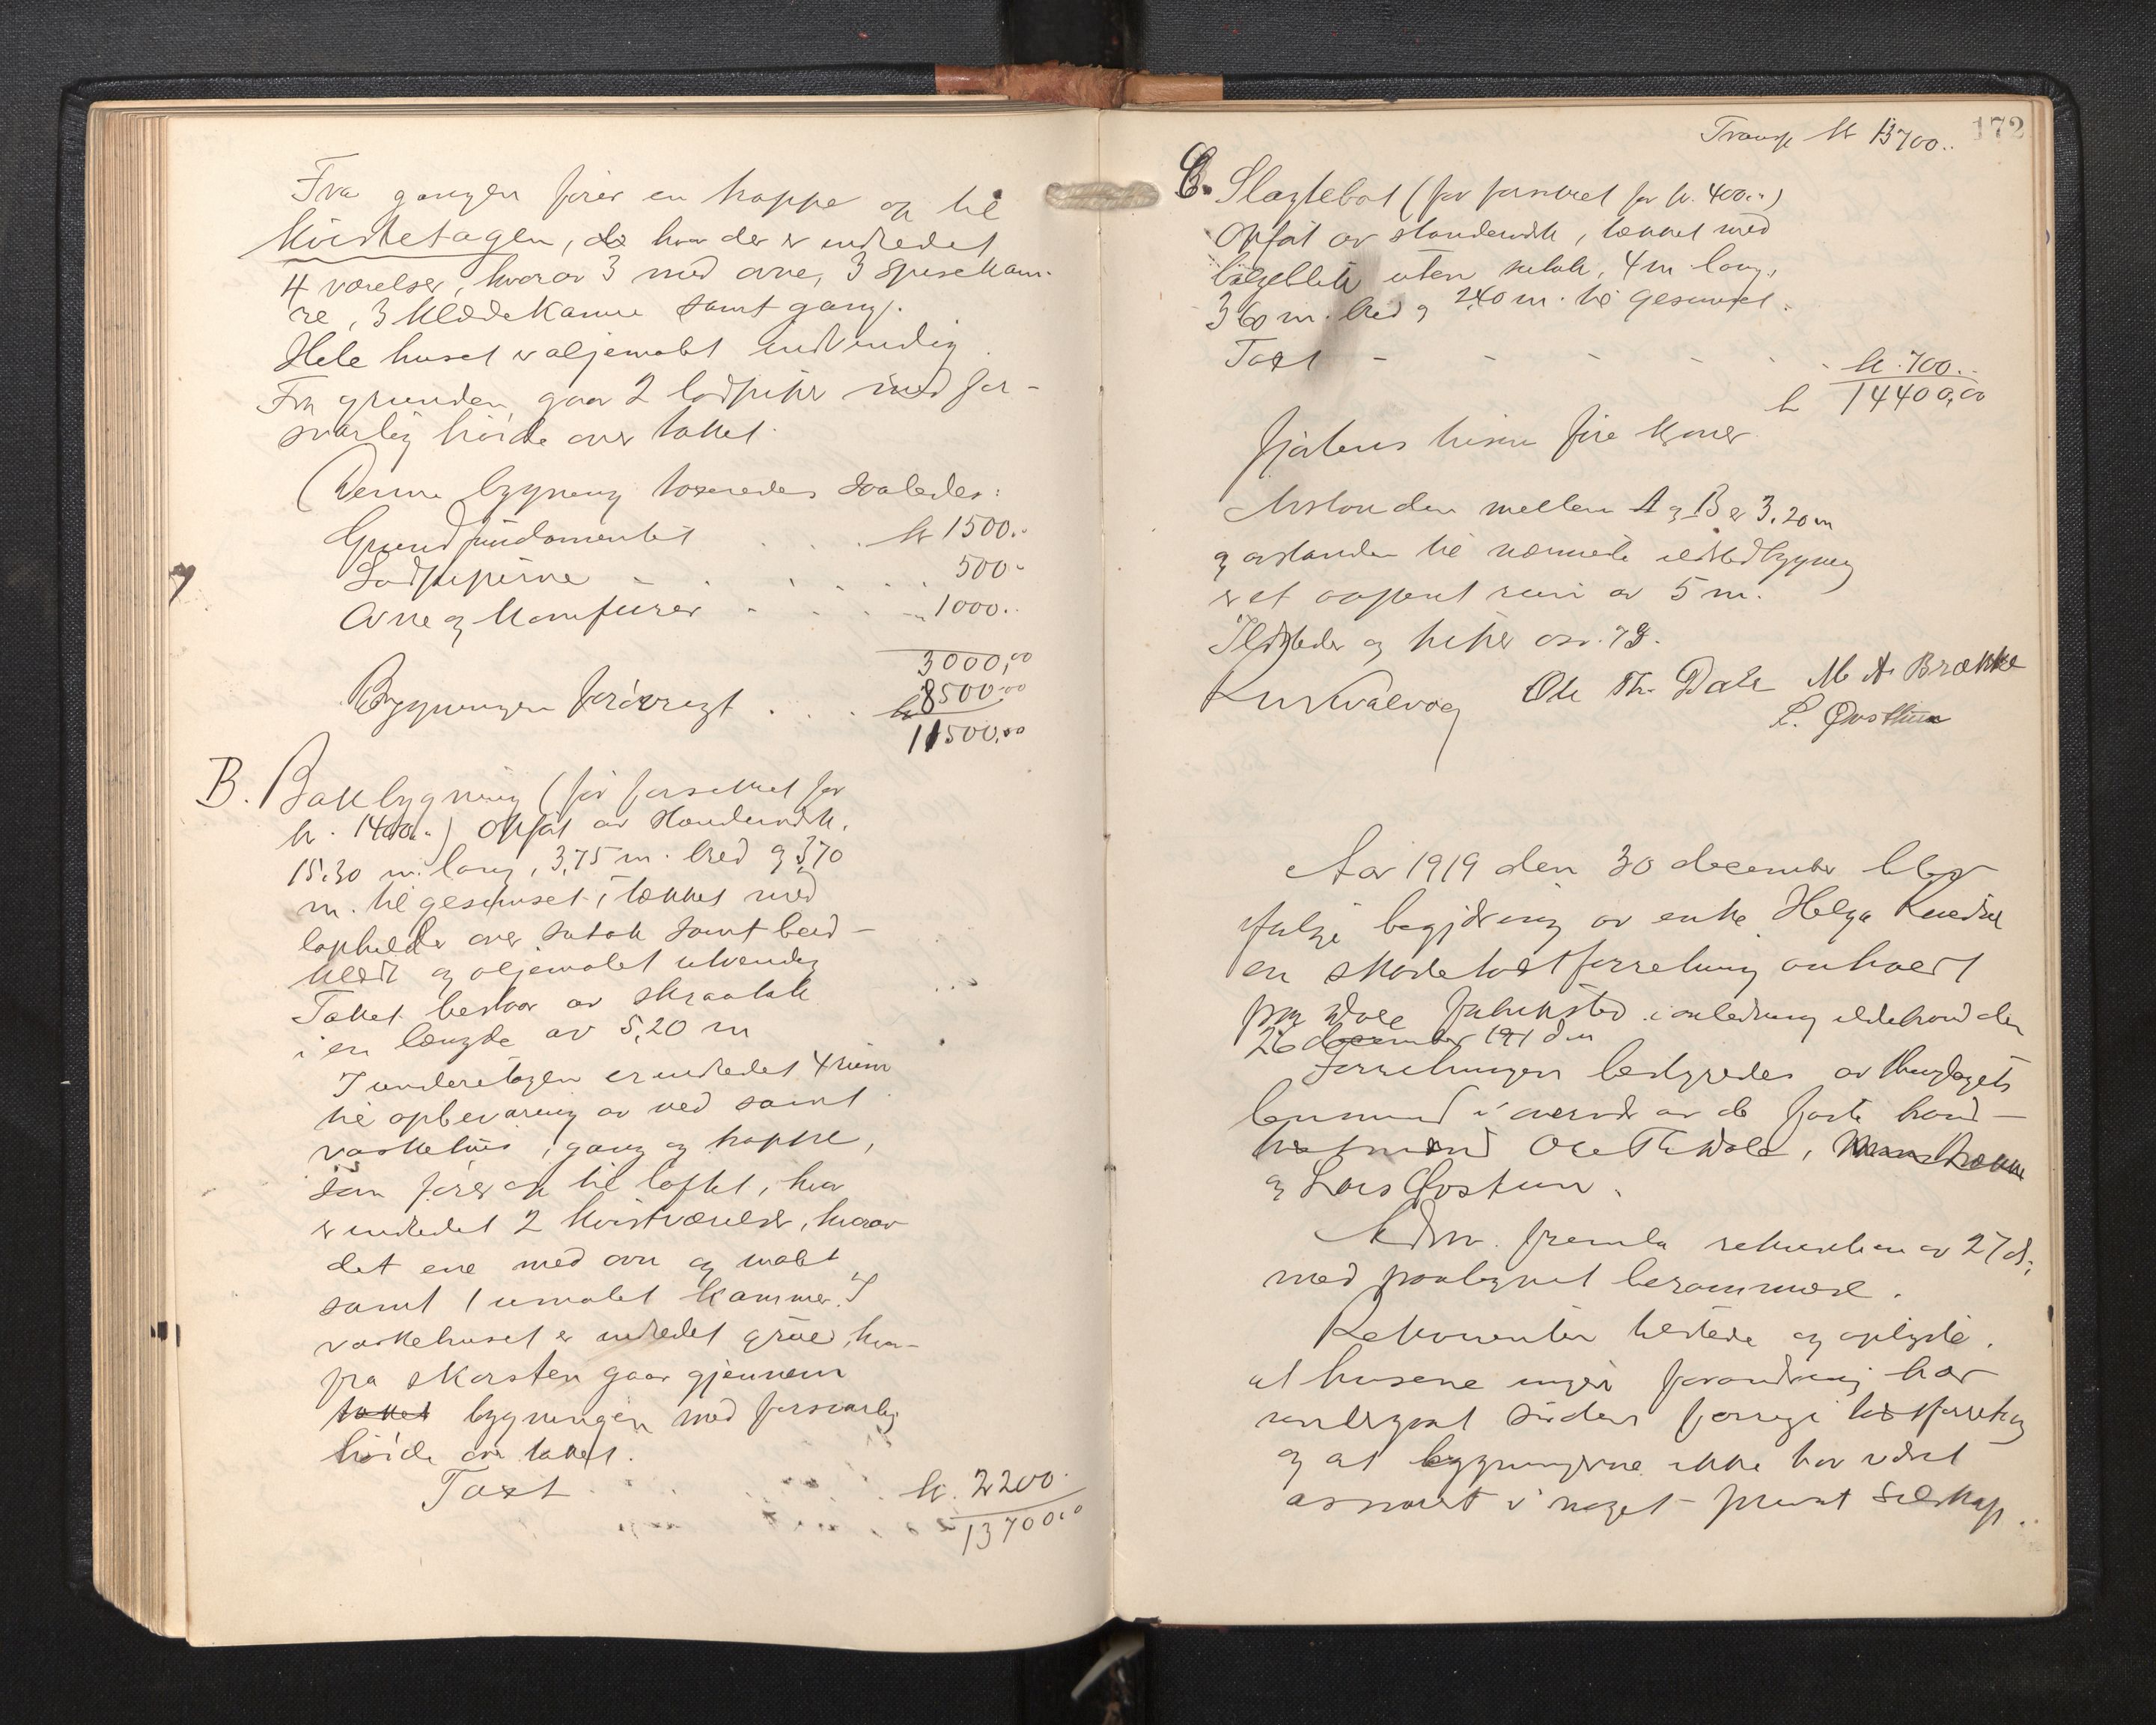 Fra gangen fører en trappe op til
Kvistetagen, de hvor der er indredet
4 værelser, hvorav 3 med ovne, 3 spisekam-
re, 3 klædekamre samt gang.
Hele huset er oljemalet indvendig.
Fra grunden gaar 2 lodpiper med for-
svarlig høide over taket.
Denne bygning taxeredes saaledes:
Grundfundamentet . . . kr 1500..
Lodpiperne - . . . . 500-
Ovne og Komfurer . . . . " 1000..
3000,00
Bygningen forøvrigt . . . kr 8500.00
11500,00
B. Bakbygning (før forsikret for
kr. 1400..) Opført av standerverk,
15.30 m. lang, 3,75 m. bred og 3,70
m. til gesimset, tækket med
laphelle over sutak samt bord-
klædt og oljemalet utvendig
Taket bestaar av skraatak
i en længde av 5,20 m
I underetagen er indredet 4 rum
til opbevaring av ved samt
vaskehus, gang og trappe,
som fører op til loftet, hvor
er indredet 2 kvistværelser, hvorav
det ene med ovn og malt
samt 1 umalet kammer. I
vaskehuset er indredet grue, hvor-
fra skorsten gaar gjennem
taket bygningen med forsvarlig
høide over taket.
Taxt . . . . . kr. 2200.
13700.00
172
Transp kr 13700..
C. Slagtebod (før forsikret for kr. 400..)
Opført av standerverk, tækket med
bølgeblik uten sutak, 4 m lang,
3.60 m. bred og 2.40 m. til gesimset.
Taxt - - - - - kr. 700..
kr 14400,00
fjortens tusen fire kroner
Avstanden mellem A og B er 3,20 m
og avstanden til nærmeste ildstedbygning
er et aapent rum av 5 m.
Ildsteder og piper
Ole Th. Dale M A Brække
Kvalvåg L. Øvsthun
Aar 1919 den 30 december blev
ifølge begjæring av enke Helga
en skadetaxtforretning avholdt
paa i anledning ildebrand den
26 december
Forretningen bestyredes av
lensmand i overvær av de faste brand-
takstmænd Ole Th Dale, Brække
og Lars Øvsthun.
Adm. fremla rekvisition av 27 ds.
med paategnet berammelse.
Rekvirenten tilstede og oplyste,
at husene ingen forandring har
undergaat siden forrige taxtforretning
og at bygningerne ikke har været
assurert i noget privat selskap.